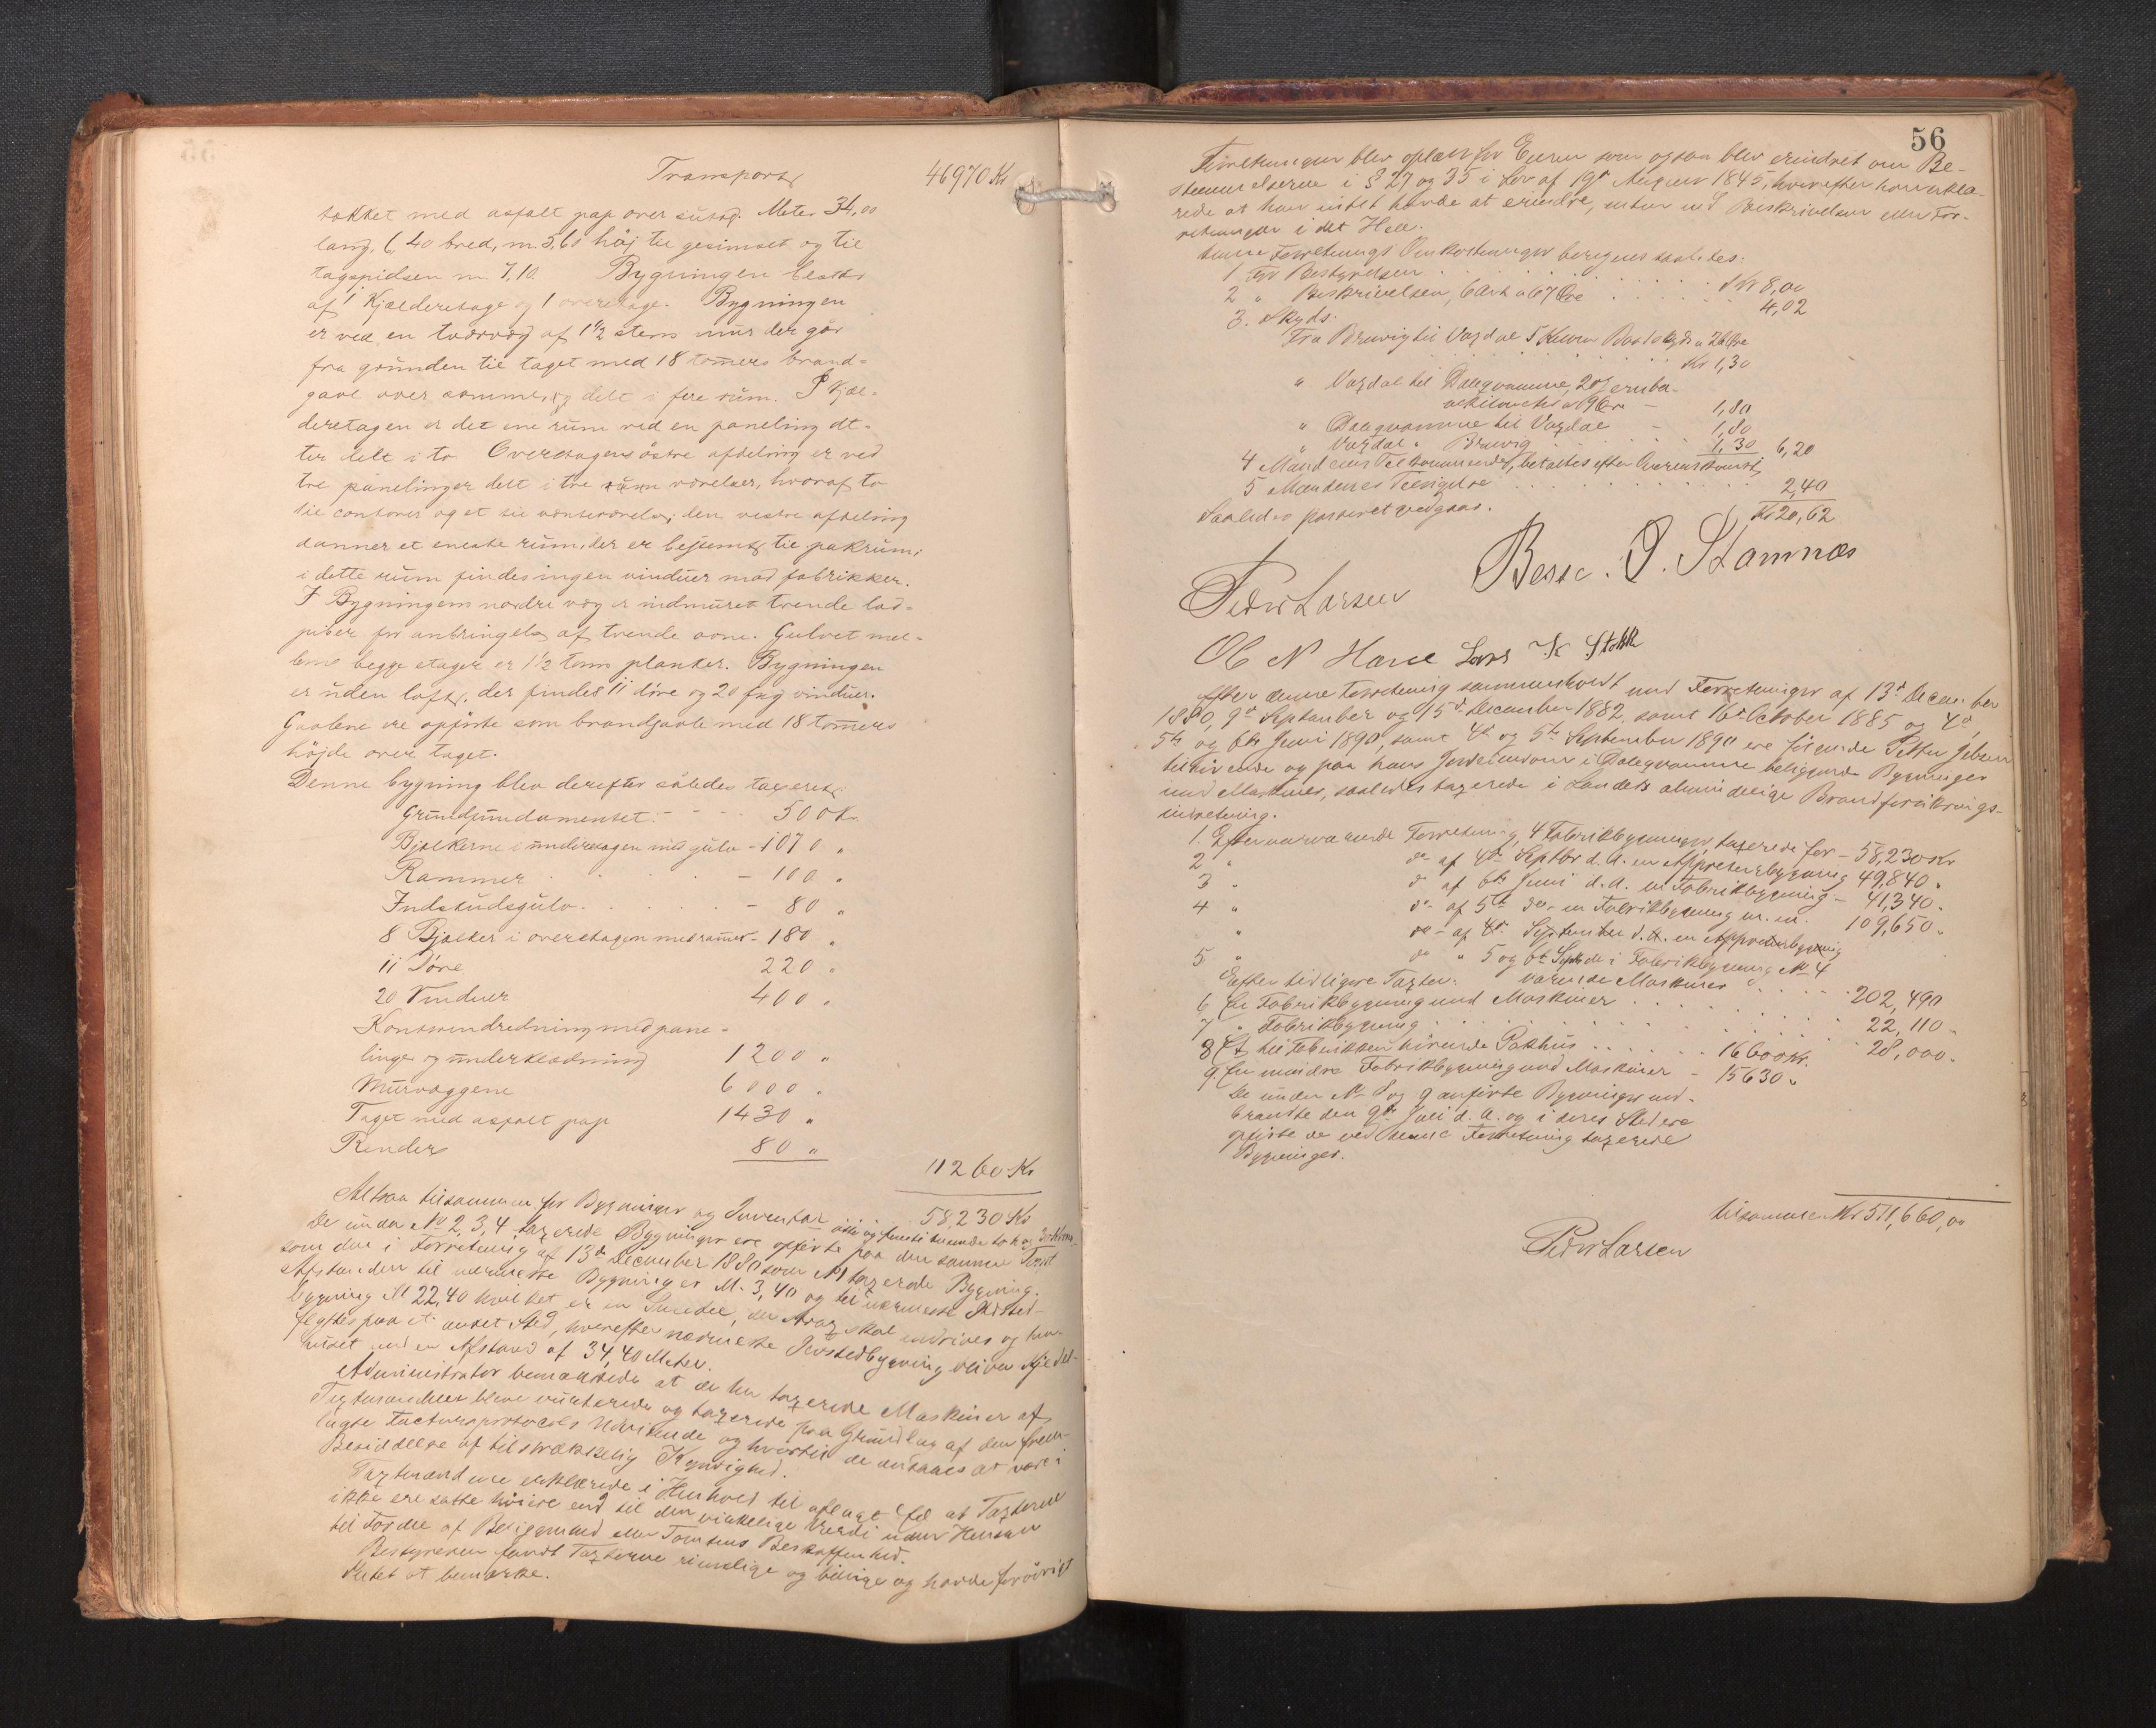 Transport 46970 Kr
takket med asfalt pap over sutag. Meter 34,00
lang, 6,40 bred, m. 5,60 høj til gesimset og til
tagspidsen m. 7,10. Bygningen består
af 1 Kjælderetage og 1 overetage. Bygningen
er ved en tværvæg af 1 1/2 stens mur der går
fra grunden til taget med 18 tommers brand-
gavl over samme, og delt i fere rum. I Kjæl-
deretagen er det ene rum ved en paneling at-
ter delt i to Overetagens østre afdeling er ved
tre panelinger delt i tre rum værelser, hvoraf to
til contorer og et til venteværelse; den vestre afdeling
danner et eneste rum, der er bestemt til pakrum;
i dette rum findes ingen vinduer mod fabrikker.
I Bygningens nordre væg er indmuret tvende lad-
piber for anbringelse af tvende ovne. Gulvet mel-
lem begge etager er 1 1/2 toms planker. Bygningen
er uden loft, der findes 11 døre og 20 fag vinduer.
Gavlene ere opførte som brandgavle med 18 tommers
højde over taget.
Denne bygning blev derefter således taxeret:
Grundfundamentet - 500 Kr.
Bjælkerne i underetagen med gulv - 1070 "
Rammer - 100 "
Indskudsgulv - 80 "
8 Bjælker i overetagen med rammer - 180 "
11 Døre 220 "
20 Vinduer 400 "
Kontorindredning med pane-
linger og underklædning 1200 "
Murvæggene 6000 "
Taget med asfalt pap 1430 "
Render 80 "
11260 Kr
Altsaa tilsammen for Bygninger og Inventar 58,230 Kr
De under No 2, 3, 4 taxerede Bygninger ere opførte paa den samme Tomt
som den i Forretning af 13de December 1880 som No 1 taxerede Bygning.
Afstanden til nærmeste Bygning er M. 3,40 og til nærmeste Ildsted-
bygning M 22,40 hvilket er en Smedie, der strax skal nedrives og
flyttes paa et andet Sted, hvorefter nærmeste Ildstedbygning bliver Kjedel-
huset med en Afstand af 34,40 Meter.
Administrator bemærkede at de her taxerede Maskiner af
Taxtmændene bleve vurderede og taxerede paa Grundlag af den frem-
lagte Facturaprotocols Udvisende og hvortil de antages at være i
Besiddelse af tilstrækkelig Kyndighed.
Taxtmændene erklærede i Henhold til aflagt Ed at Taxterne
ikke ere satte høiere end til den virkelige Værdi uden Hensyn
til Fordel af Beliggenhed eller Tomtens Beskaffenhed.
Bestyreren fandt Taxterne rimelige og billige og havde forøvrigt
Intet at bemærke.
56
Forretningen blev oplæst for Eieren som ogsaa blev erindret om Be-
stemmelserne i § 27 og 35 i Lov af 19de August 1845, hvorefter han erklæ-
rede at han intet havde at erindre, enten ved Beskrivelsen eller For-
retningen i det Hele.
Denne Forretnings Omkostninger beregnes saaledes:
1 For Bestyrelsen Kr 8,00
2 " Beskrivelsen, 6 Ark a 67 Øre 4,02
3. Skyds:
Fra Bruvig til Vaxdal 5 Kilom Baadskyds a 26 Øre
Kr 1,30
" Vaxdal til Dalegvamme, 20 Jernba-
nekilometer a 9 Øre - 1,80
" Dalegvamme til Vaxdal - 1,80
" Vaxdal " Bruvig 1,30 6,20
4 Mændenes Tilkommende, betaltes efter Overenskomst,
5 Mændenes Tilsigelse 2,40
Saaledes passeret vedgaar. Kr 20,62
Peder Larsen Besse. J. Stamnæs
Ole N Hove Lars K Stokke
Efter denne Forretning sammenholdt med Forretninger af 13de December
1880, 9de September og 15de December 1882 samt 16de October 1885 og 4de,
5te og 6te Juni 1890, samt 4de og 5te September 1890 ere følgende Petter Jebsen
tilhørende og paa hans Jordeiendom i Dalegvamme beliggende Bygninger
med Maskiner, saaledes taxerede i Landets almindelige Brandforsikrings-
indretning.
1. Efter nærværende Forretning 4 Fabrikbygninger, taxerede for - 58,230 Kr
2 " do af 4de Septbr d. A. en Appreturbygning 49,840 "
3 " do af 6te Juni d. A. en Fabrikbygning - 41,340 "
4 " do af 5te do en Fabrikbygning m. m. 109,650 "
" do - af 4de September d. A. en Appreturbygning
5 " do " 5 og 6te Septb de i Fabrikbygning No 4
værende Maskiner 202,490
Efter tidligere Taxter:
6 En Fabrikbygning med Maskiner 22,110 "
7 " Fabrikbygning 28,000 "
8 Et til Fabrikken hørende Pakhus 16600 Kr.
9. En mindre Fabrikbygning med Maskiner - 15630 "
De under No 8 og 9 anførte Bygninger ned-
brændte den 9de Juli d. A. og i deres Sted ere
opførte de ved denne Forretning taxerede
Bygninger.
tilsammen Kr 511,660,00
Peder Larsen